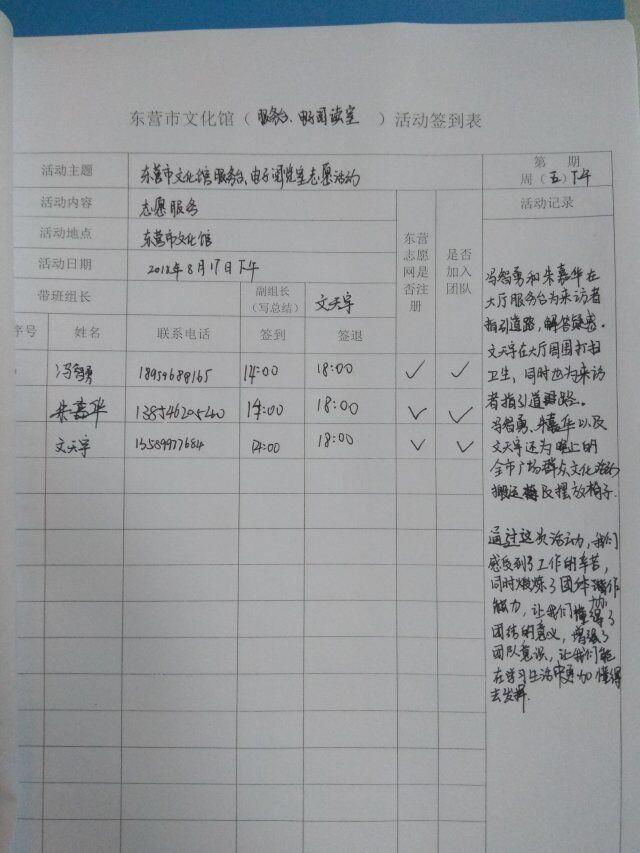 东营市文化馆（服务台、电子阅读室）活动签到表
活动主题 东营市文化馆服务台、电子阅览室志愿活动
第 期
周（五）下午
活动内容 志愿服务
活动地点 东营市文化馆
活动日期 2012年8月17日下午
带班组长 副组长（写总结） 文天宇
东营志愿网是否注册
是否加入团队
活动记录
序号 姓名 联系电话 签到 签退
冯智勇 18959689165 14:00 18:00 ✓ ✓
朱嘉华 13854620540 14:00 18:00 ✓ ✓
文天宇 13589977684 14:00 18:00 ✓ ✓
冯智勇和朱嘉华在
大厅服务台为来访者
指引道路，解答疑惑。
文天宇在大厅周围打扫
卫生，同时也为来访
者指引道路。
冯智勇、朱嘉华以及
文天宇还为晚上的
全市广场群众文化活动
搬运及摆放椅子.
通过这次活动，我们
感受到了工作的辛苦，
同时锻炼了团体协作
能力，让我们懂得了
团结的意义，增强了
团队意识，让我们能
在学习生活中更加懂得
去发挥.